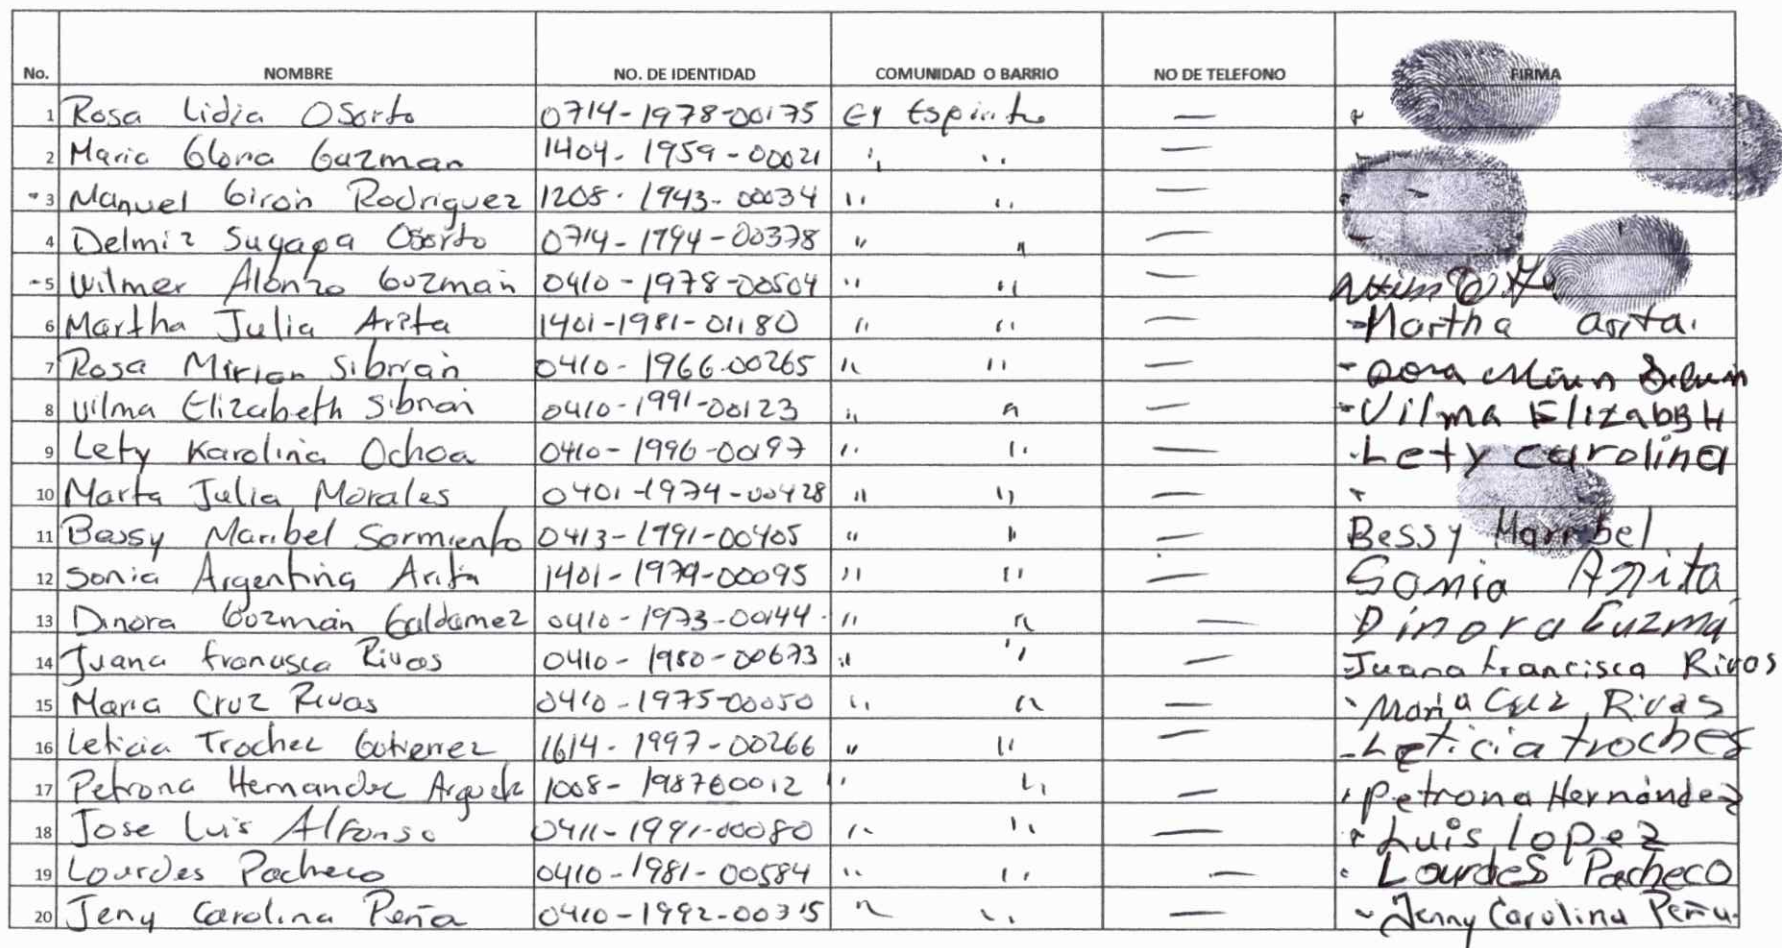 No. NOMBRE NO. DE IDENTIDAD COMUNIDAD O BARRIO NO DE TELEFONO FIRMA
1 Rosa Lidia Osorto 0714-1978-00175 El Espiritu —
2 Maria Gloria Guzman 1404-1959-00021 " " —
3 Manuel Giron Rodriguez 1208-1943-00034 " " —
4 Delmi Suyapa Osorto 0714-1994-00378 " " —
5 Wilmer Alonzo Guzman 0410-1978-00504 " " —
6 Martha Julia Arita 1401-1981-01180 " " — Martha arita.
7 Rosa Mirian Sibrian 0410-1966-00265 " " —
8 Vilma Elizabeth Sibrian 0410-1991-00123 " " — Vilma ElizabBH
9 Lety Karolina Ochoa 0410-1996-00197 " " — Lety carolina
10 Marta Julia Morales 0401-1974-00428 " " —
11 Bessy Maribel Sarmiento 0413-1991-00405 " " — Bessy Maribel
12 Sonia Argentina Arita 1401-1979-00095 " " — Sonia Arita
13 Dinora Guzmán Galdamez 0410-1973-00144 " " — Dinora Guzma
14 Juana francisca Rivas 0410-1980-00673 " " — Juana francisca Rivas
15 Maria Cruz Rivas 0410-1975-00050 " " — Maria Cruz Rivas
16 Leticia Trochez Gutierrez 1614-1997-00266 " " — Leticia troches
17 Petrona Hernandez 1008-198760012 " " — Petrona Hernández
18 Jose Luis Alfonso 0411-1991-00080 " " — Luis lopez
19 Lourdes Pacheco 0410-1981-00584 " " — Lourdes Pacheco
20 Jeny Carolina Peña 0410-1992-00315 " " — Jenny Carolina Peña.